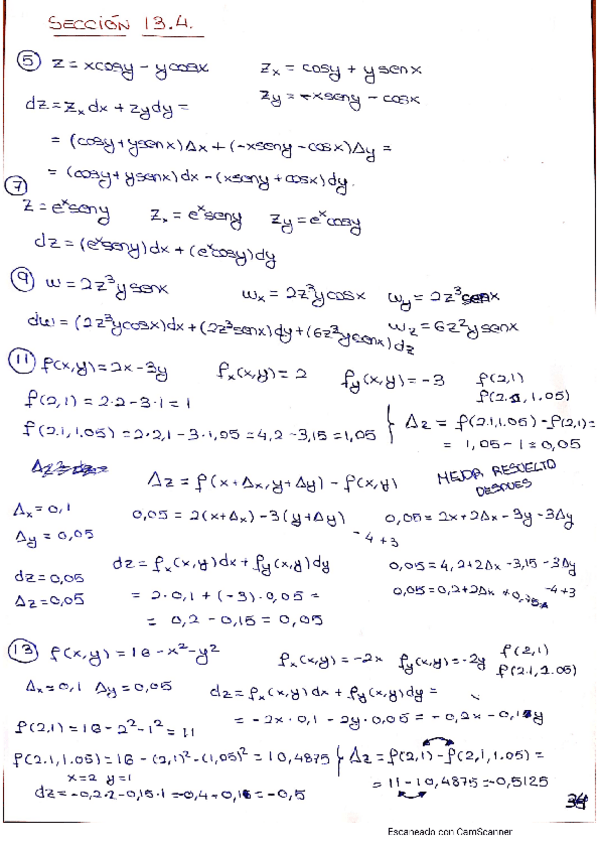 SECCIÓN 13.4.
⑤ z = xcosy - ycosx    zₓ = cosy + ysenx
zy = -xseny - cosx
dz = zₓdx + zydy =
= (cosy + ysenx)Δx + (-xseny - cosx)Δy =
= (cosy + ysenx)dx - (xseny + cosx)dy.
⑦
z = eˣseny    zₓ = eˣseny    zy = eˣcosy
dz = (eˣseny)dx + (eˣcosy)dy
⑨ w = 2z³ysenx    wₓ = 2z³ycosx    wy = 2z³senx
dw = (2z³ycosx)dx + (2z³senx)dy + (6z²ysenx)dz    wz = 6z²ysenx
⑪ f(x,y) = 2x - 3y    fₓ(x,y) = 2    fy(x,y) = -3    f(2,1)
f(2.1, 1.05)
f(2,1) = 2·2 - 3·1 = 1
f(2.1, 1.05) = 2·2,1 - 3·1,05 = 4,2 - 3,15 = 1,05    Δz = f(2.1, 1.05) - f(2,1) =
= 1,05 - 1 = 0,05
Δz = f(x + Δx, y + Δy) - f(x,y)    MEJOR RESUELTO
DESPUES
Δx = 0,1    0,05 = 2(x + Δx) - 3(y + Δy)    0,05 = 2x + 2Δx - 3y - 3Δy
Δy = 0,05    -4 + 3
dz = fₓ(x,y)dx + fy(x,y)dy    0,05 = 4,2 + 2Δx - 3,15 - 3Δy
dz = 0,05    -4 + 3
Δz = 0,05    = 2·0,1 + (-3)·0,05 =    0,05 = 0,2 + 2Δx
= 0,2 - 0,15 = 0,05
⑬ f(x,y) = 16 - x² - y²    fₓ(x,y) = -2x    fy(x,y) = -2y    f(2,1)
f(2.1, 1.05)
Δx = 0,1    Δy = 0,05    dz = fₓ(x,y)dx + fy(x,y)dy =
= -2x·0,1 - 2y·0,05 = -0,2x - 0,1y
f(2,1) = 16 - 2² - 1² = 11
f(2.1, 1.05) = 16 - (2,1)² - (1,05)² = 10,4875    Δz = f(2,1) - f(2,1, 1.05) =
x = 2    y = 1    = 11 - 10,4875 = -0,5125
dz = -0,2·2 - 0,15·1 = -0,4 - 0,1 = -0,5
34
Escaneado con CamScanner